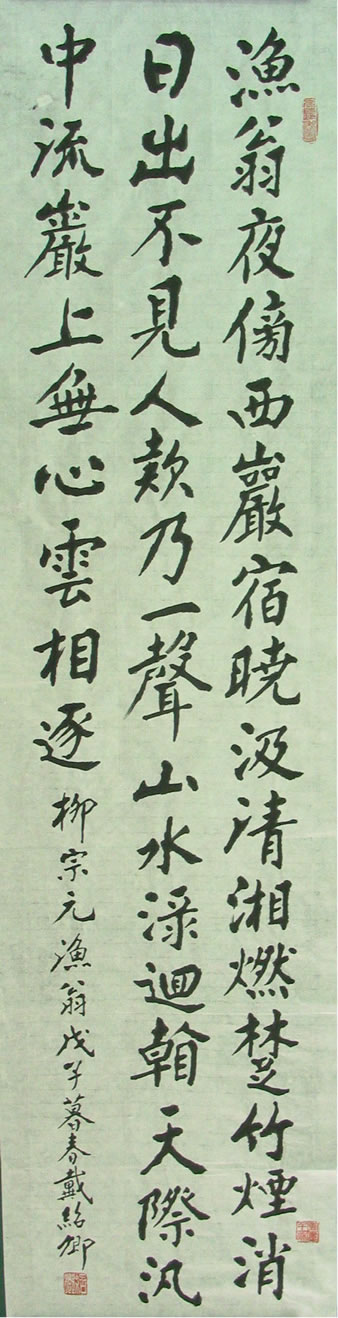 漁翁夜傍西巖宿曉汲清湘燃楚竹煙消
日出不見人欵乃一聲山水淥迴看天際汎
中流巖上無心雲相逐 柳宗元漁翁戊子暮春戴紹卿